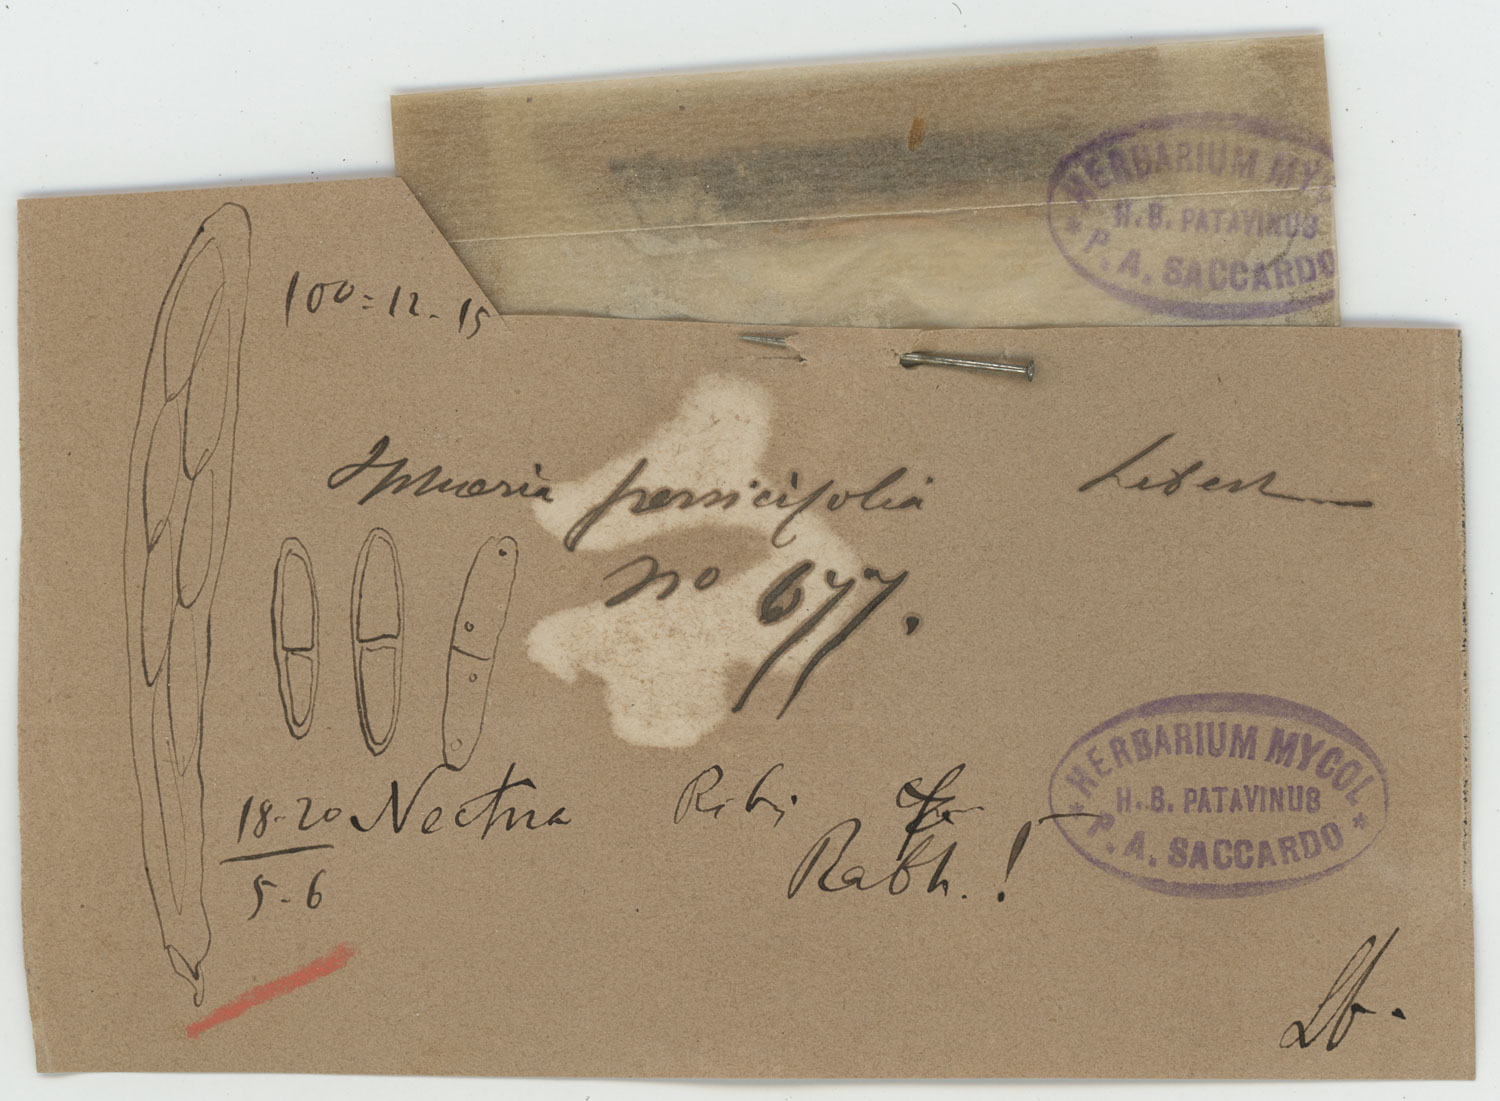 HERBARIUM MYC
H. B. PATAVINUS
* P. A. SACCARDO
100 = 12 - 15
Sphaeria persicifolia Libert
No 677.
18-20 Nectria Ribis
5-6
Rabh.!
HERBARIUM MYCOL
H. B. PATAVINUS
* P. A. SACCARDO *
Lb.